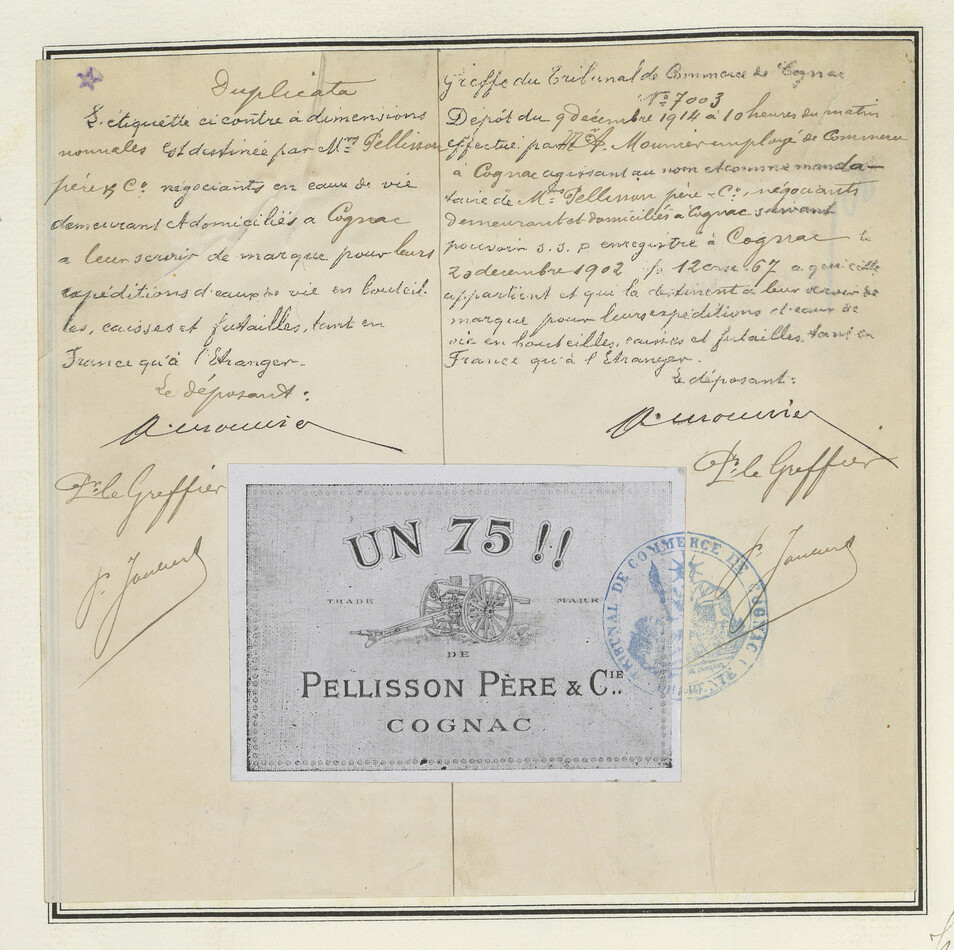 Duplicata
L'étiquette ci contre à dimensions
normales est destinée par Mrs Pellisson
père & Co. négociants en eaux de vie
demeurant et domiciliés à Cognac
a leur servir de marque pour leurs
expéditions d'eaux de vie en bouteil-
les, caisses et futailles, tant en
France qu'à l'Etranger.
Le déposant:
A. Mounier
Pr. le Greffier
Greffe du Tribunal de Commerce de Cognac
No. 7003
Dépôt du 9 décembre 1914 à 10 heures du matin
effectué par Mr A. Mounier employé de Commerce
à Cognac agissant au nom et comme manda-
taire de Mrs Pellisson père & Co., négociants
demeurant et domiciliés à Cognac suivant
pouvoir s.s.p enregistré à Cognac le
20 décembre 1902 fo 12 case 67 a qui elle
appartient et qui la destinent à leur servir de
marque pour leurs expéditions d'eaux de
vie en bouteilles, caisses et futailles, tant en
France qu'à l'Etranger.
Le déposant:
A. Mounier
Pr. le Greffier
UN 75 !!
TRADE MARK
DE
PELLISSON PÈRE & CIE..
COGNAC
TRIBUNAL DE COMMERCE DE COGNAC